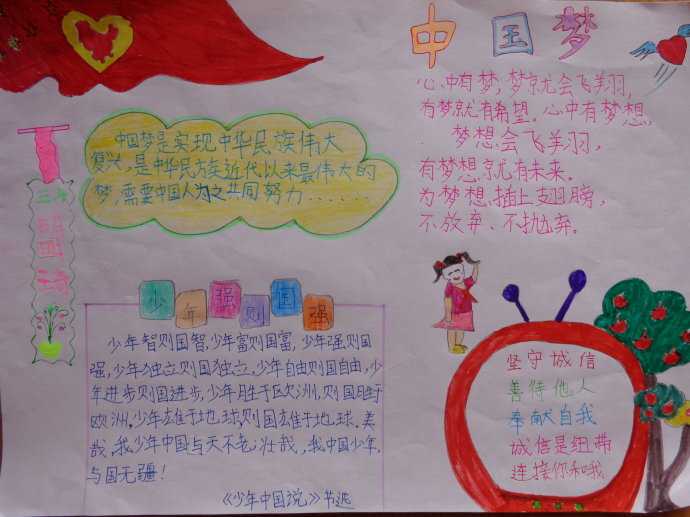 中国梦
心中有梦,梦就会飞羊羽,
为梦就有希望。心中有梦想,
梦想会飞羊羽,
有梦想,就有未来。
为梦想,插上翅膀,
不放弃、不抛弃。
中国梦是实现中华民族伟大
复兴,是中华民族近代以来最伟大的
梦,需要中国人为之共同努力......
少年强则国强
少年智则国智,少年富则国富,少年强则国
强,少年独立则国独立,少年自由则国自由,少
年进步则国进步,少年胜于欧洲,则国胜于
欧洲,少年雄于地球,则国雄于地球.美
哉,我少年中国与天不老;壮哉,我中国少年,
与国无疆!
《少年中国说》节选
坚守诚信
善待他人
奉献自我
诚信是纽带
连接你和哦